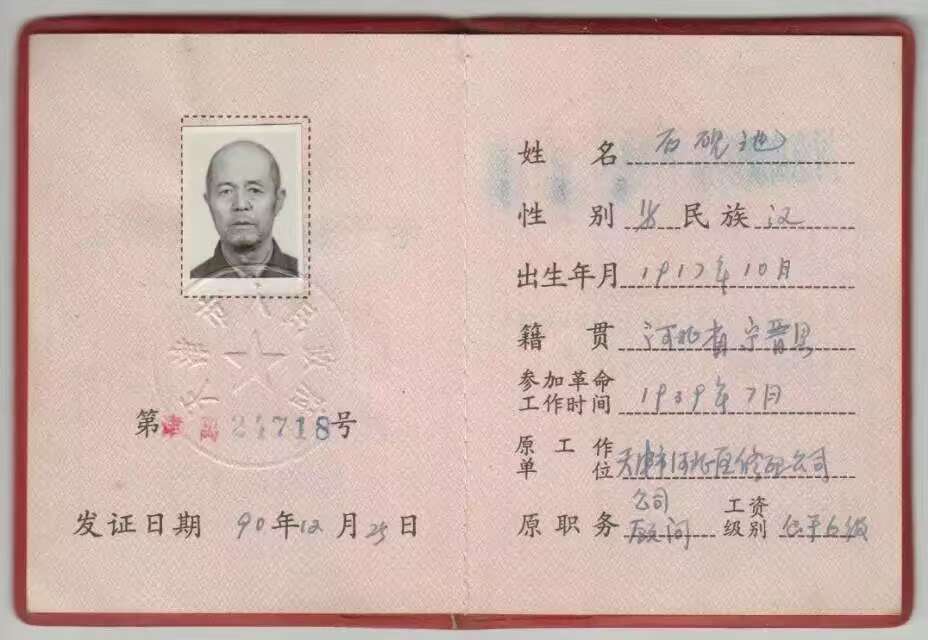 天津市人民政府
第津离24718号
发证日期 90年12月25日
姓名 石砚池
性别 男 民族 汉
出生年月 1917年10月
籍贯 河北省宁晋县
参加革命工作时间 1939年7月
原工作单位 天津市河北区修配公司
原职务 公司顾问 工资级别